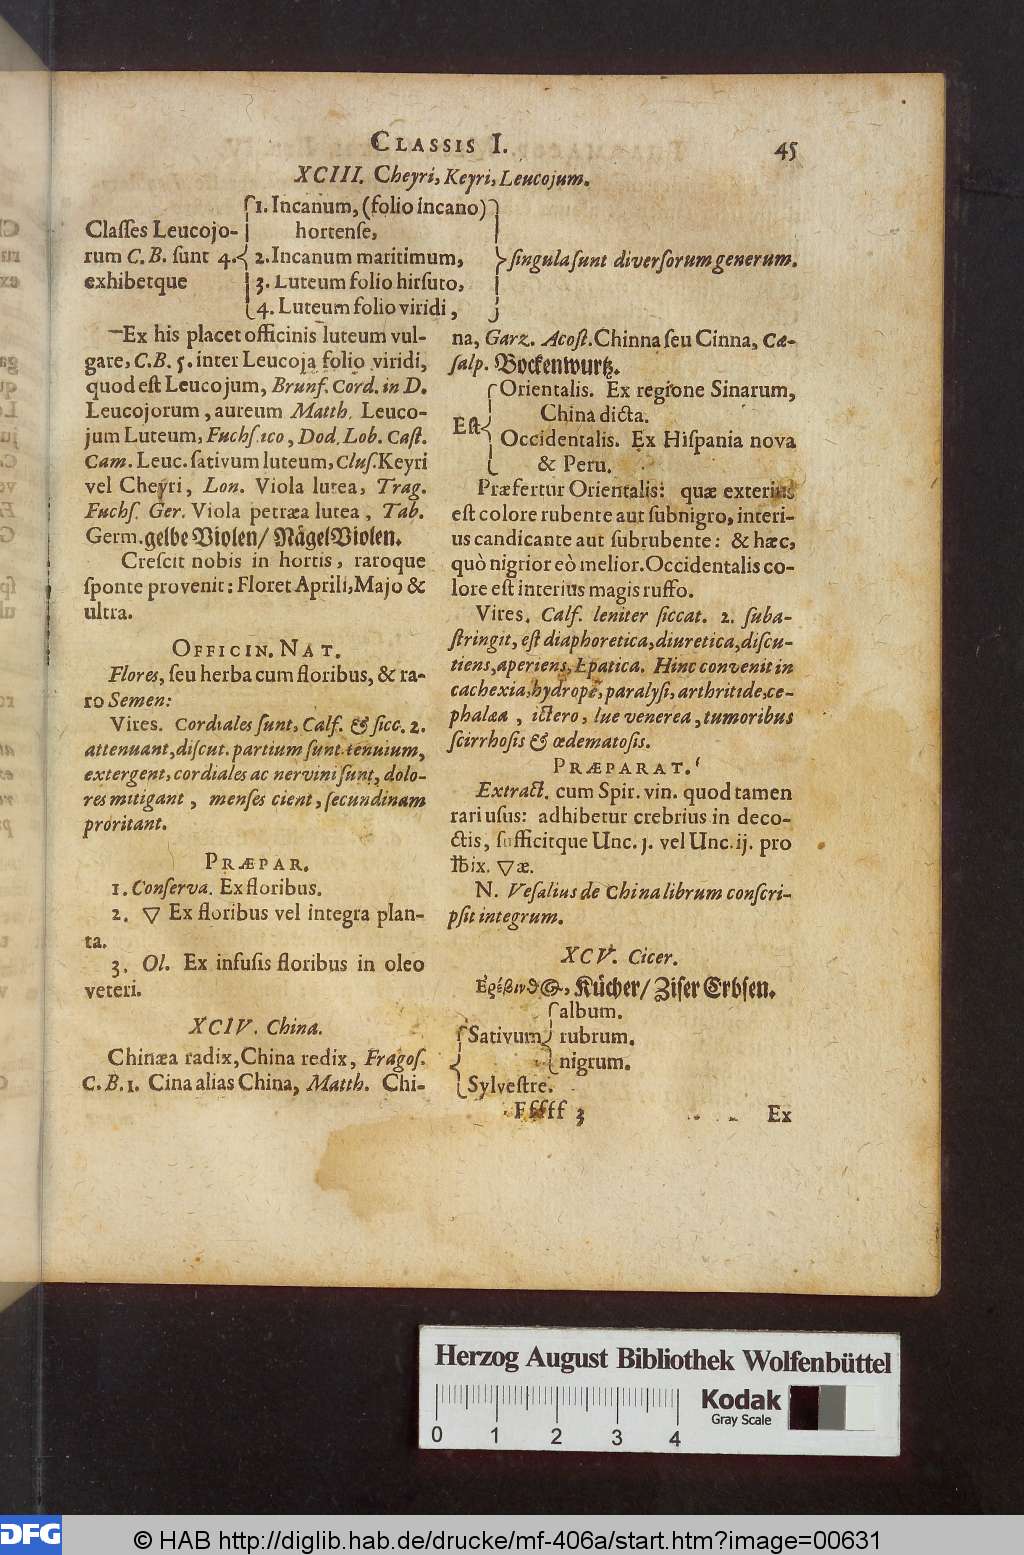 CLASSIS I.
45
XCIII. Cheyri, Keyri, Leucojum.
Classes Leucojo-
rum C. B. sunt 4.
exhibetque
1. Incanum, (folio incano)
hortense,
2. Incanum maritimum,
3. Luteum folio hirsuto,
4. Luteum folio viridi,
singula sunt diversorum generum.
Ex his placet officinis luteum vul-
gare, C.B. 5. inter Leucoja folio viridi,
quod est Leucojum, Brunf. Cord. in D.
Leucojorum, aureum Matth. Leuco-
jum Luteum, Fuchs. ico, Dod. Lob. Cast.
Cam. Leuc. sativum luteum, Clus. Keyri
vel Cheyri, Lon. Viola lutea, Trag.
Fuchs. Ger. Viola petræa lutea, Tab.
Germ. gelbe Violen/ Någel Violen.
Crescit nobis in hortis, raroque
sponte provenit: Floret Aprili, Majo &
ultra.
OFFICIN. NAT.
Flores, seu herba cum floribus, & ra-
ro Semen:
Vires. Cordiales sunt, Calf. & sicc. 2.
attenuant, discut. partium sunt tenuium,
extergent, cordiales ac nervini sunt, dolo-
res mitigant, menses cient, secundinam
proritant.
PRÆPAR.
1. Conserva. Ex floribus.
2. ▽ Ex floribus vel integra plan-
ta.
3. Ol. Ex infusis floribus in oleo
veteri.
XCIV. China.
Chinæa radix, China redix, Fragos.
C. B. 1. Cina alias China, Matth. Chi-
na, Garz. Acost. Chinna seu Cinna, Cæ-
salp. Bockenwurtz.
Est
Orientalis. Ex regione Sinarum,
China dicta.
Occidentalis. Ex Hispania nova
& Peru.
Præfertur Orientalis: quæ exterius
est colore rubente aut subnigro, interi-
us candicante aut subrubente: & hæc,
quò nigrior eò melior. Occidentalis co-
lore est interius magis ruffo.
Vires. Calf. leniter siccat. 2. suba-
stringit, est diaphoretica, diuretica, discu-
tiens, aperiens, Epatica. Hinc convenit in
cachexia, hydrope, paralysi, arthritide, ce-
phalæa, ictero, lue venerea, tumoribus
scirrhosis & œdematosis.
PRÆPARAT.
Extract. cum Spir. vin. quod tamen
rari usus: adhibetur crebrius in deco-
ctis, sufficitque Unc. j. vel Unc. ij. pro
℔ ix. ▽æ.
N. Vesalius de China librum conscri-
psit integrum.
XCV. Cicer.
Ἐρέβινθ⊙, Kücher/ Ziser Erbsen.
Sativum
album.
rubrum.
nigrum.
Sylvestre.
Fffff 3
Ex
Herzog August Bibliothek Wolfenbüttel
0 1 2 3 4
Kodak
Gray Scale
DFG
© HAB http://diglib.hab.de/drucke/mf-406a/start.htm?image=00631